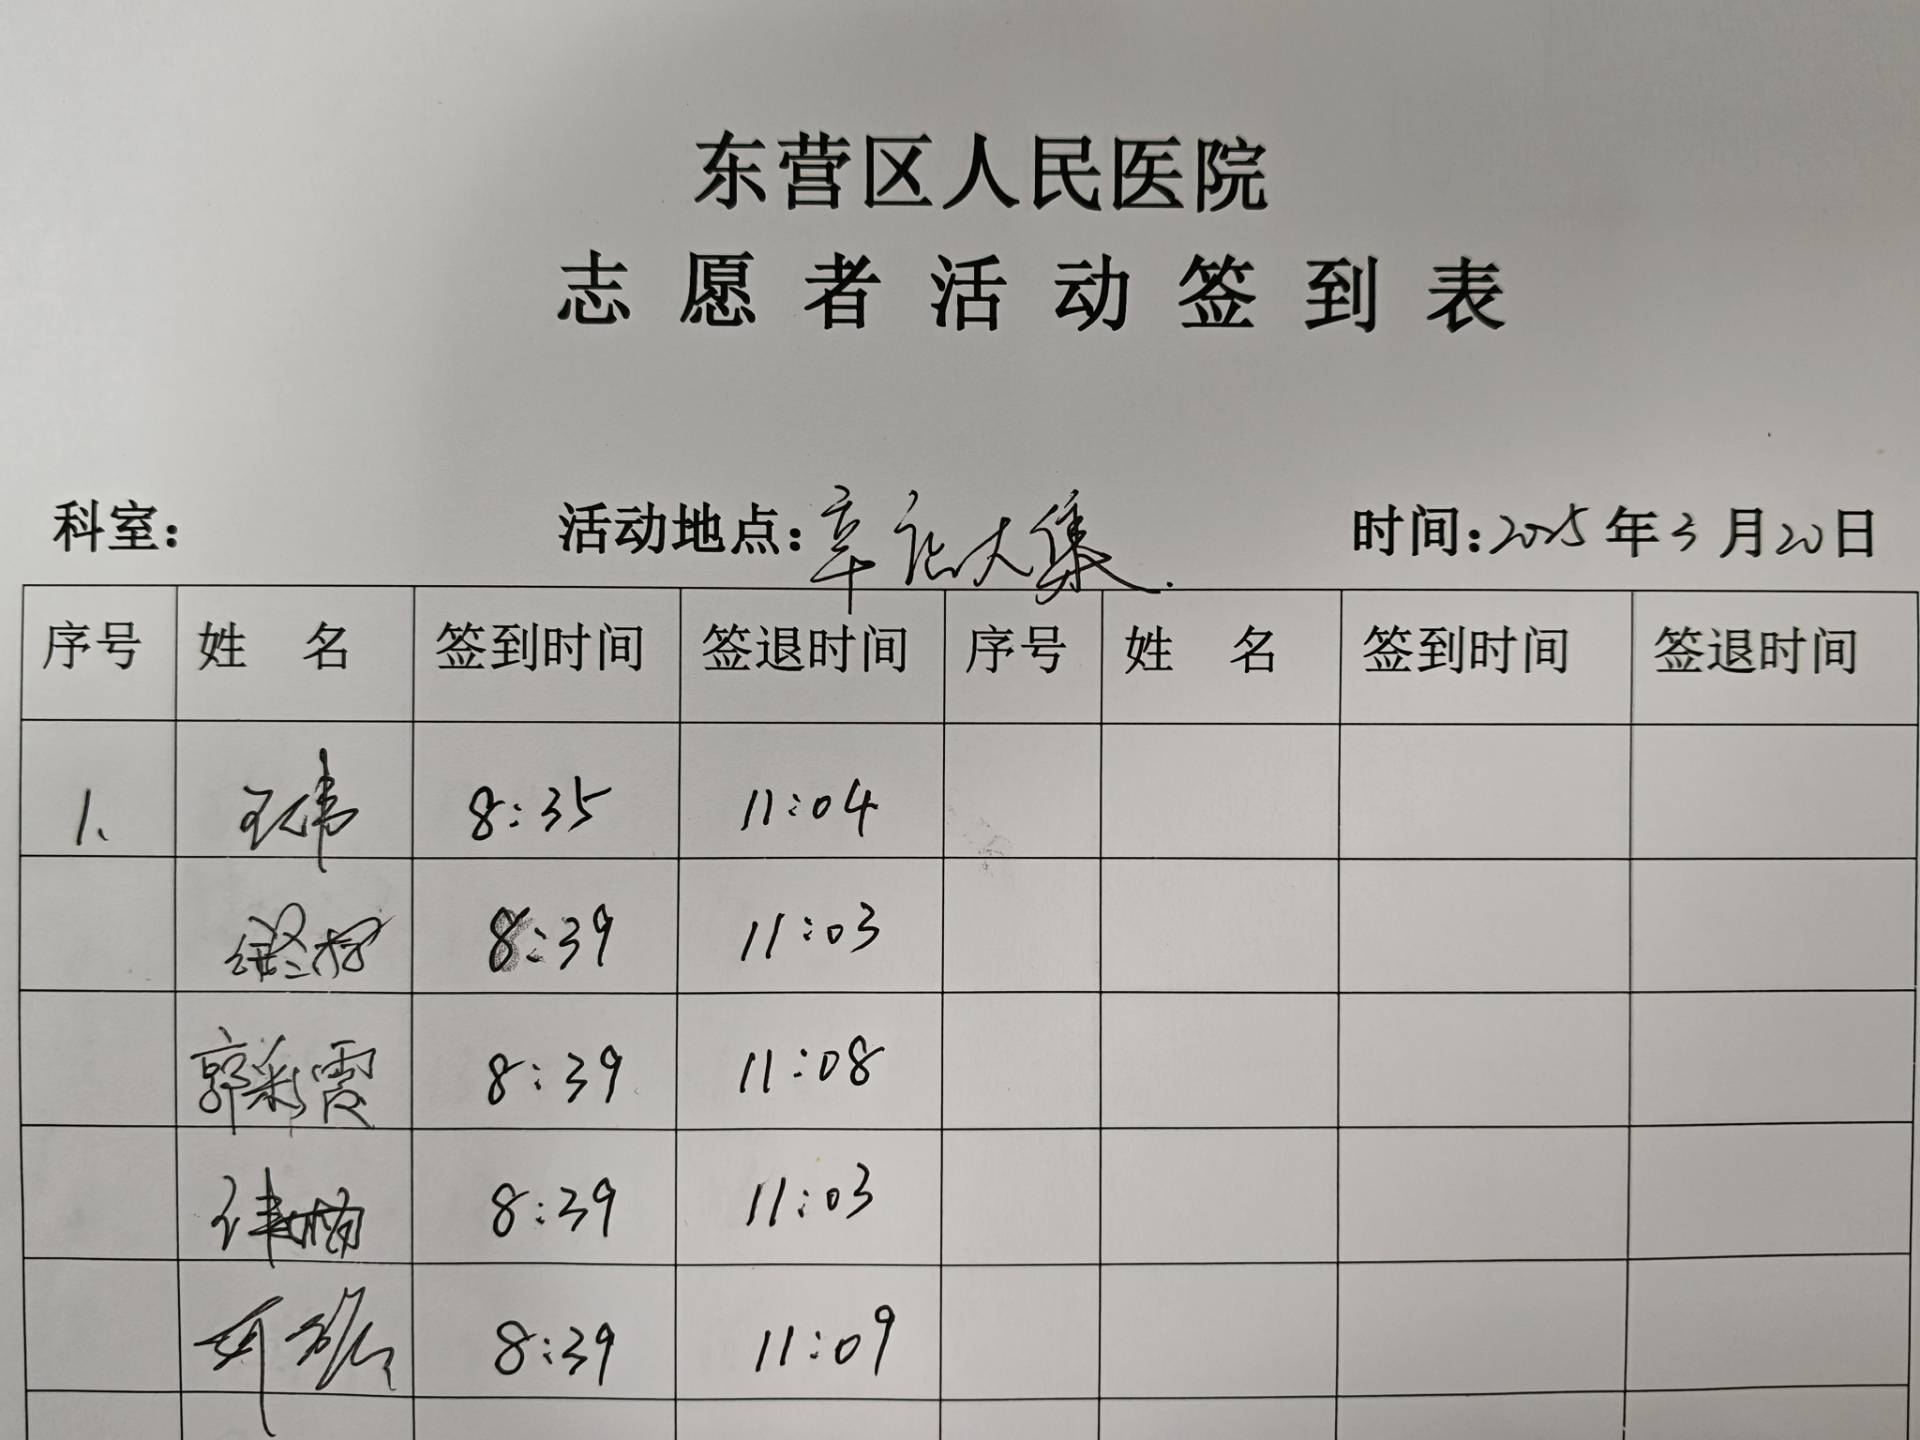 东营区人民医院
志愿者活动签到表
科室： 活动地点：辛店大集. 时间：2025年3月20日
序号 姓名 签到时间 签退时间 序号 姓名 签到时间 签退时间
1、 王伟 8:35 11:04
8:39 11:03
郭彩霞 8:39 11:08
8:39 11:03
8:39 11:09